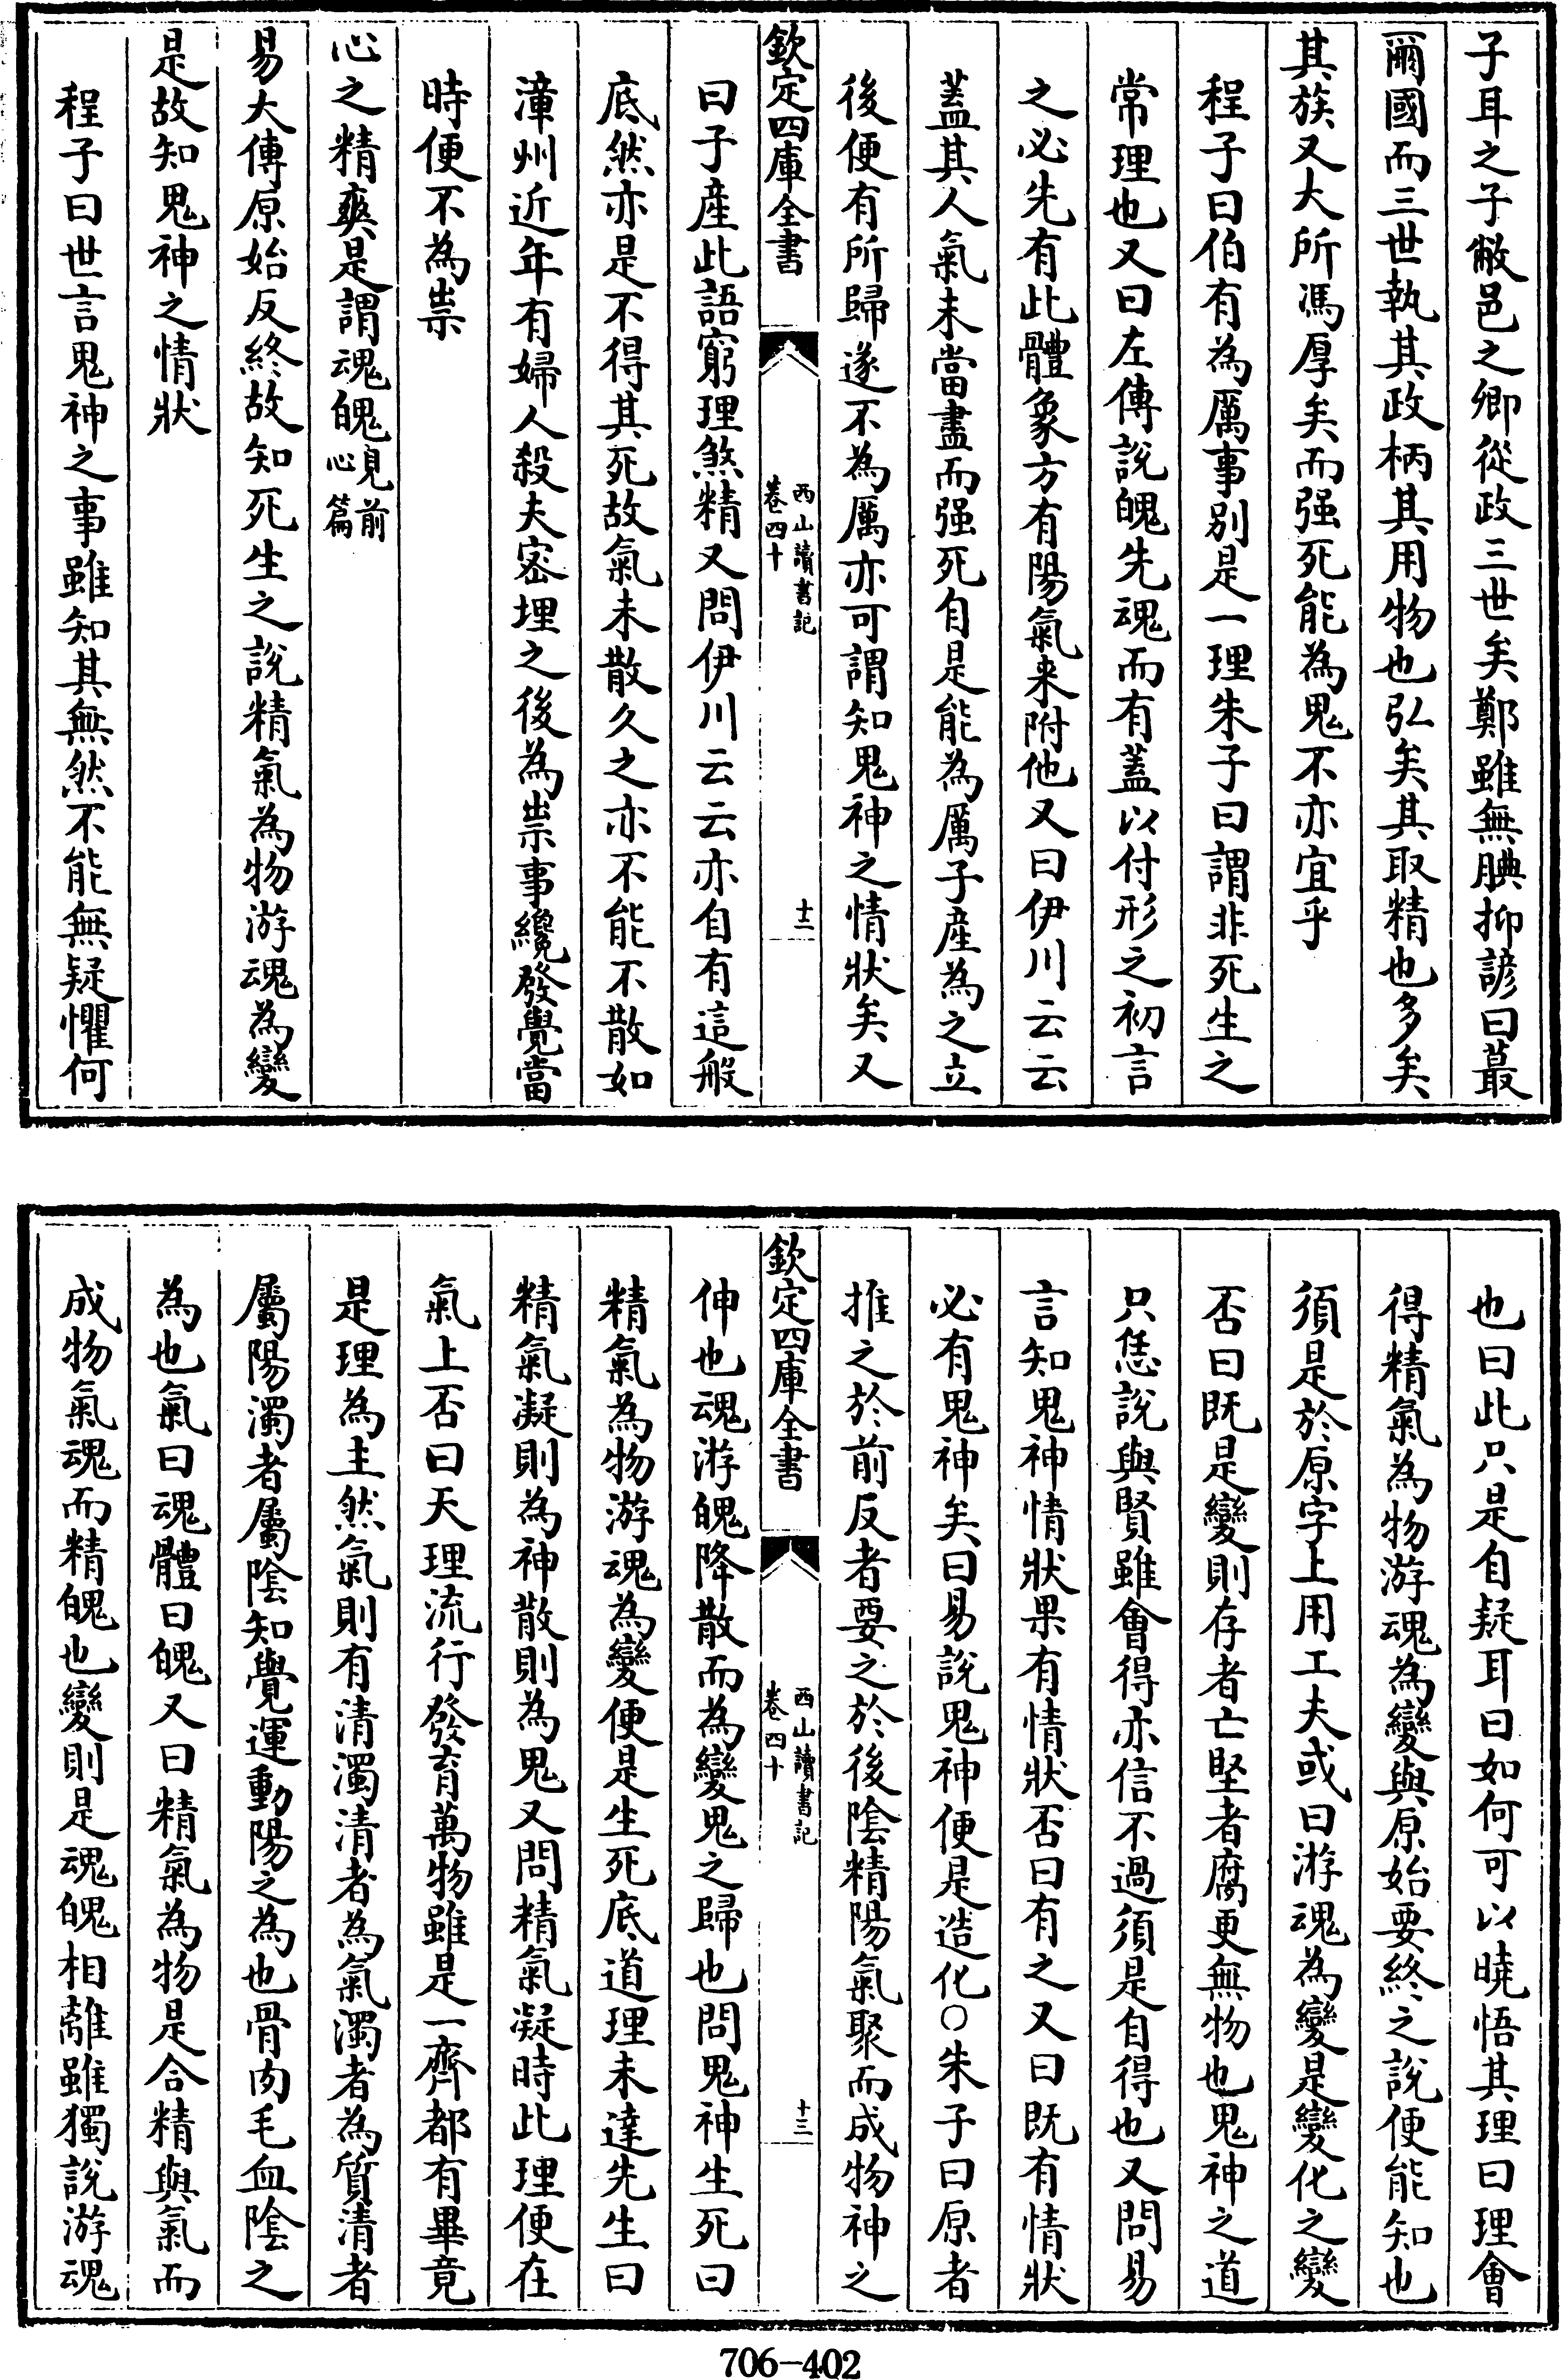 子耳之子敝邑之卿從政三世矣鄭雖無腆抑諺曰蕞
爾國而三世執其政柄其用物也弘矣其取精也多矣
其族又大所馮厚矣而强死能為鬼不亦宜乎
程子曰伯有為厲事别是一理朱子曰謂非死生之
常理也又曰左傳說魄先魂而有蓋以付形之初言
之必先有此體象方有陽氣来附他又曰伊川云云
蓋其人氣未當盡而强死自是能為厲子產為之立
後便有所歸遂不為厲亦可謂知鬼神之情狀矣又
欽定四庫全書
西山讀書記
卷四十
十二
曰子產此語窮理煞精又問伊川云云亦自有這般
底然亦是不得其死故氣未散久之亦不能不散如
漳州近年有婦人殺夫密埋之後為祟事纔發覺當
時便不為祟
心之精爽是謂魂魄見前心篇
易大傳原始反終故知死生之說精氣為物游魂為變
是故知鬼神之情狀
程子曰世言鬼神之事雖知其無然不能無疑懼何
也曰此只是自疑耳曰如何可以曉悟其理曰理會
得精氣為物游魂為變與原始要終之說便能知也
須是於原字上用工夫或曰游魂為變是變化之變
否曰既是變則存者亡堅者腐更無物也鬼神之道
只恁說與賢雖會得亦信不過須是自得也又問易
言知鬼神情狀果有情狀否曰有之又曰既有情狀
必有鬼神矣曰易說鬼神便是造化○朱子曰原者
推之於前反者要之於後陰精陽氣聚而成物神之
欽定四庫全書
西山讀書記
卷四十
十三
伸也魂游魄降散而為變鬼之歸也問鬼神生死曰
精氣為物游魂為變便是生死底道理未達先生曰
精氣凝則為神散則為鬼又問精氣凝時此理便在
氣上否曰天理流行發育萬物雖是一齊都有畢竟
是理為主然氣則有清濁清者為氣濁者為質清者
屬陽濁者屬陰知覺運動陽之為也骨肉毛血陰之
為也氣曰魂體曰魄又曰精氣為物是合精與氣而
成物氣魂而精魄也變則是魂魄相離雖獨說游魂
706-402